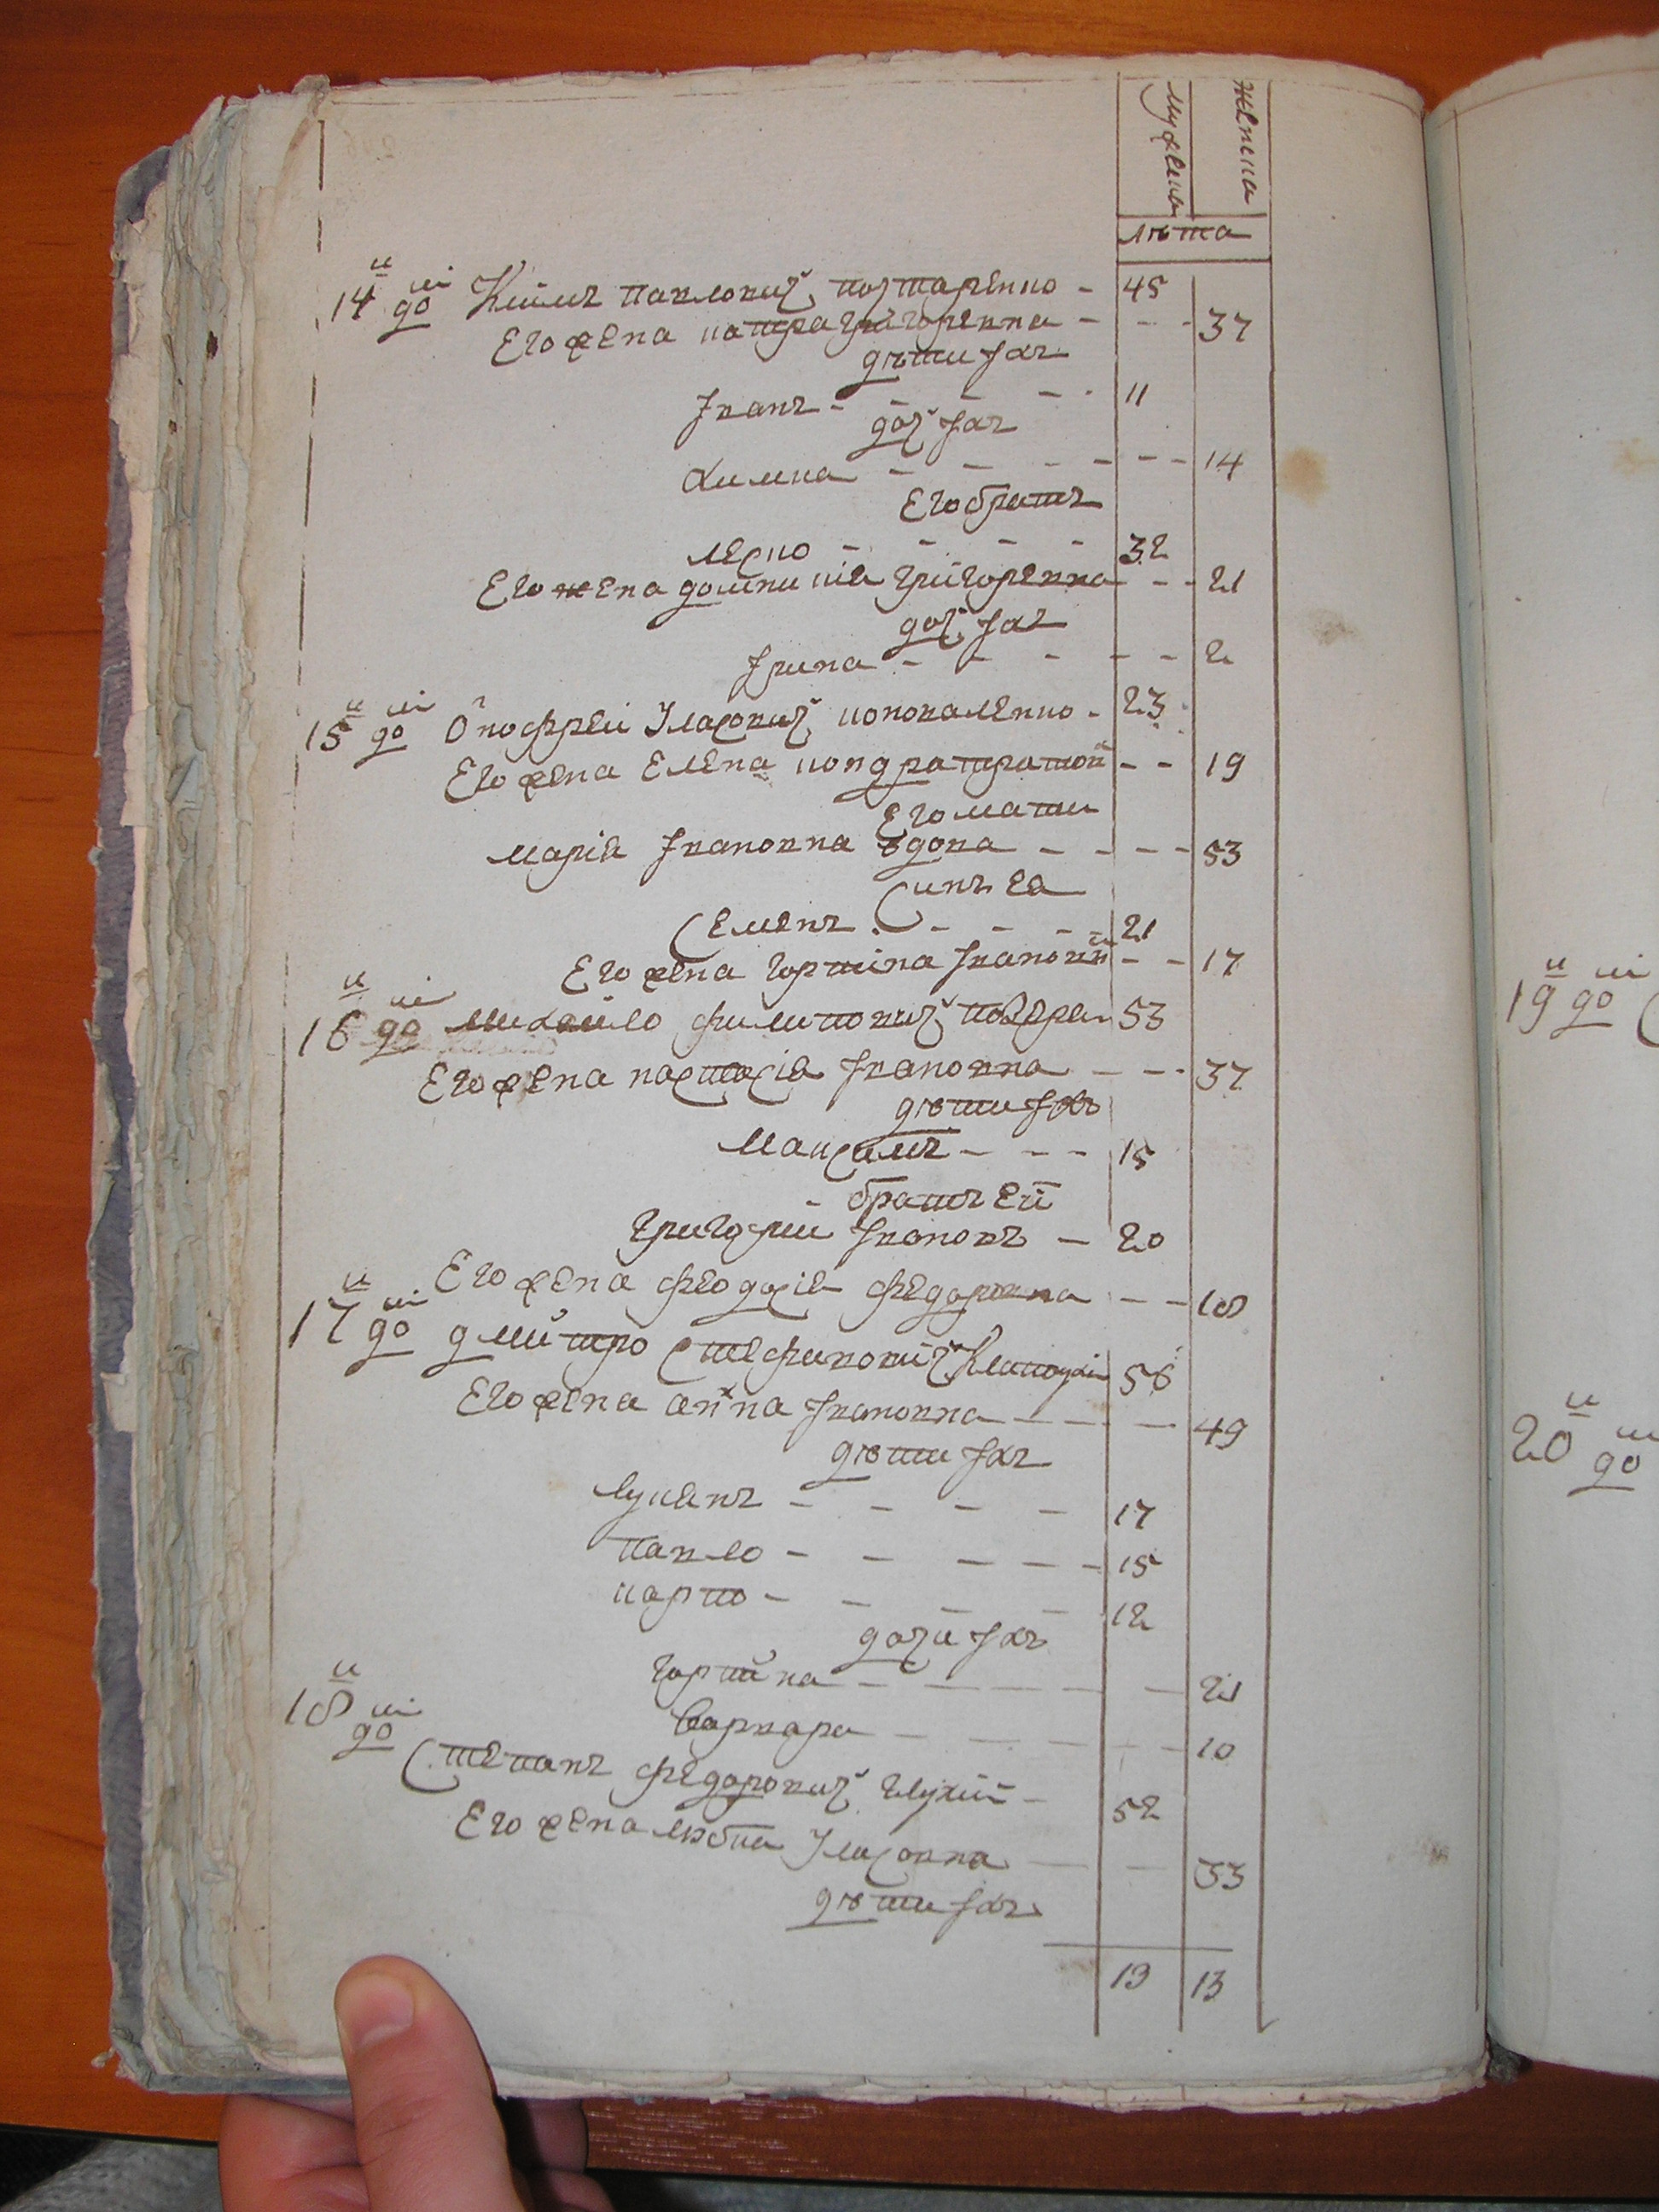 мужеска
женска
лѣта
14й дво Климъ Павловичъ 45
Его жена Григоревна 37
дѣти ихъ
Иванъ 11
дочь ихъ
Химка 14
Его братъ
Леско 32
Его жена Домникия Григоревна 21
дочь ихъ
Ирина 2
15й дво Онофрей Уласовичъ Коноваленко 23
Его жена Елена Кондратратов 19
Его мати
Мария Ивановна вдова 53
Синъ ея
Семенъ 21
Его жена Горпина Ивановн 17
16й дво Михайло Филиповичъ 53
Его жена Настасия Ивановна 37
дѣти ихъ
Максимъ 15
братъ ей
Григорий Ивановъ 20
Его жена Феодосия Федоровна 18
17й дво Дмитро Стефановичъ 56
Его жена Анна Ивановна 49
дѣти ихъ
Лукянъ 17
Павло 15
Карпо 12
дочки ихъ
Горпина 21
Варвара 10
18й дво
Степанъ Федоровичъ Глухий 52
Его жена Уласовна 33
дѣти ихъ
13 13
19й дво
20й дво